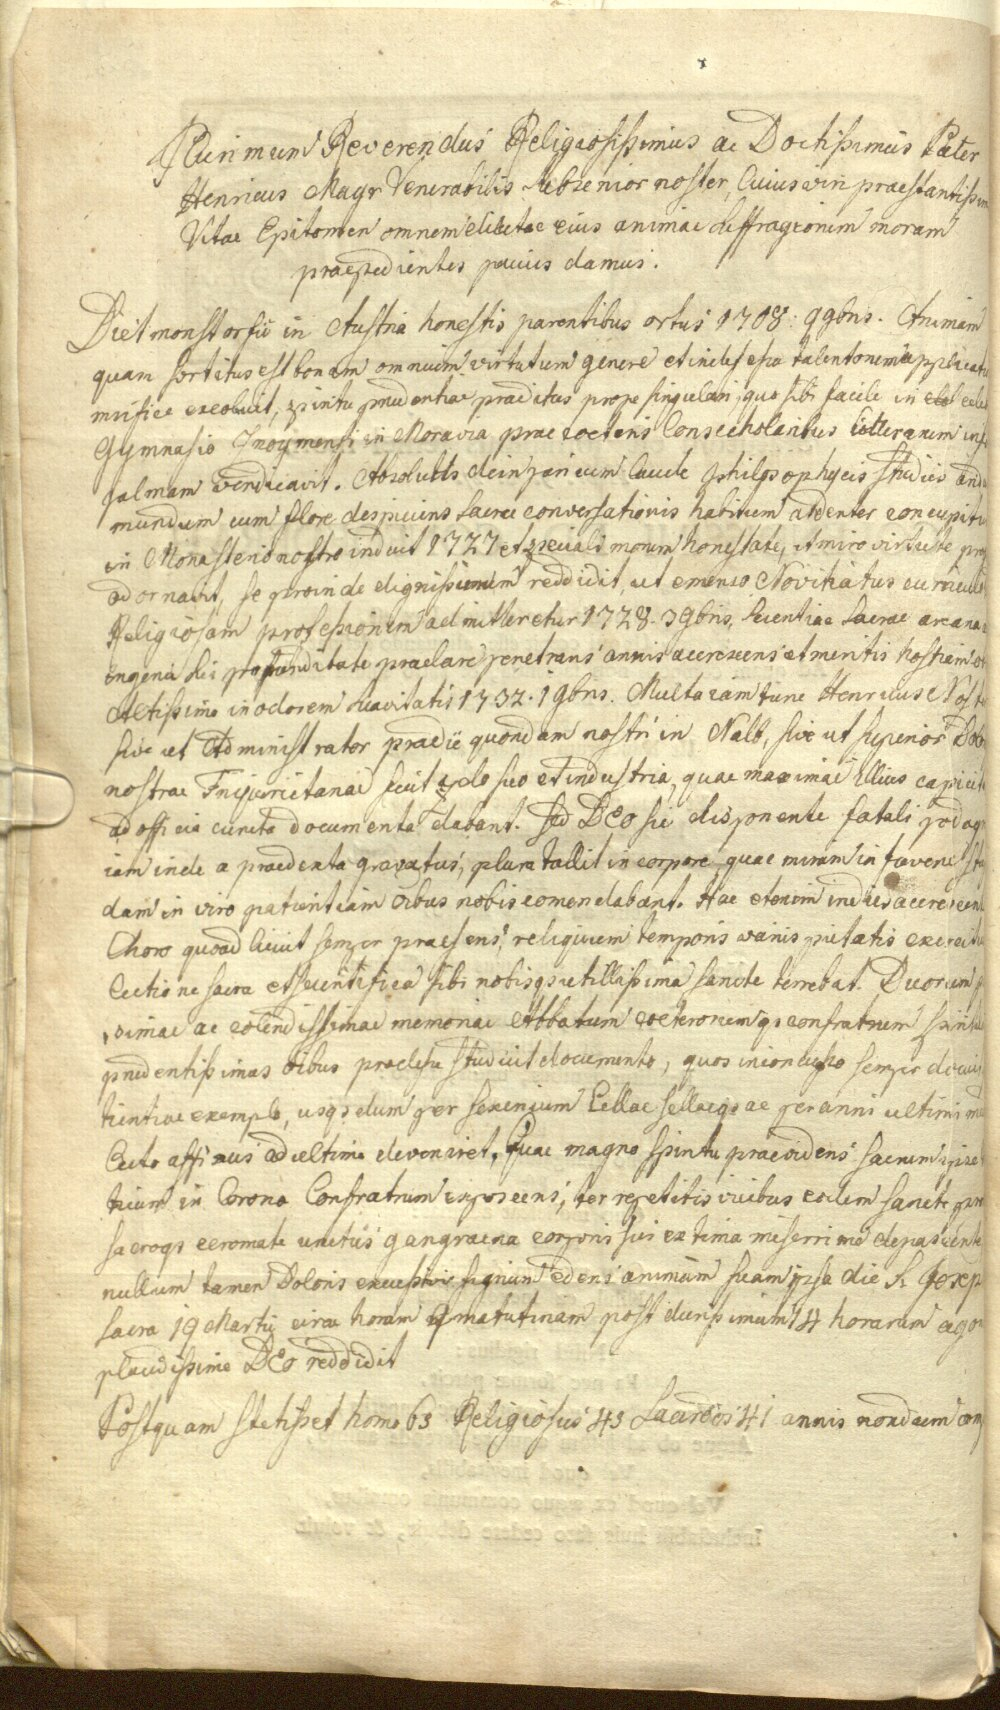 Plurimum Reverendus Religiosissimus ac Doctissimus Pater
Henricus Mayr Venerabilis Subsenior noster, Cuius viri praestantissimi
Vitae Epitomen omnem electae eius animae suffragiorum moram
praepedientes paucis damus.
Dietmonstorfii in Austria honestis parentibus ortus 1708. 99bris. Animam
quam sortitus est bonam omnium virtutum genere et indefessa talentorum applicatu
mirifice excoluit, spiritu prudentiae praeditus prope singulari, quo sibi facile in cele
Gymnasio Znoymensi in Moravia prae coeteris Conscholaribus litterarum
palmam vendicavit. Absolutis dein pari cum laude philosophycis studiis
mundum cum flore despiciens sacrae conversationis habitum ardenter concupitu
in Monasterio nostro induit 1727 et speciali morum honestate, et miro virtute
adornavit, se proinde dignissimum reddidit, ut emenso Novitiatus curriculo
Religiosam professionem admitteretur 1728. 39bris. Scientiae sacrae arcana
ingenii sui profunditate praeclare penetrans annis accrescens et meritis hostiam
Altissimo in odorem suavitatis 1732. 19bris. Multa iam tunc Henricus Noster
sive ut Administrator praedii quondam nostri in Nalb, sive ut superior
nostrae fecit zelo suo et industria, quae maximae illius
ad officia cuncta documenta dabant. Sed DEo sic disponente fatali podagr
iam inde a praedenta gravatus, plura tullit in corpore, quae miram in iuvene
dam in viro patientiam oibus nobis comendabant. Hac etenim indies accrescente
Choro quoad licuit semper praesens, reliquum temporis variis pietatis exerciti
Lectione sacra et scientifica sibi nobisqs utillissima sancte terrebat. Duorum
simae ac colendissimae memoriae Abbatum coeterorumqs confratrum
prudentissimas oibus prodesse studuit documento, quos inconcusso semper
tientiae exemplo, usqs dum per sexenium Cellae sellaeqs ac per anni ultimi
Lecto affixus ad ultima deveniret. Quae magno spiritu praevidens sacrum
in Corona Confratrum exposcens, ter repetitis vicibus eodem sancte
sacroqs ceromate unctus gangraena corporis sui extima miserrime depascente
nullum tamen Doloris excessivi signum edens animam suam ipsa die S. Joseph
sacra 19 Martii circa horam matutinam post durissimum 14 horarum agon
placidissime DEo reddidit
Postquam stetisset homo 63 Religiosus 43 Sacerdos 41 annis nondum